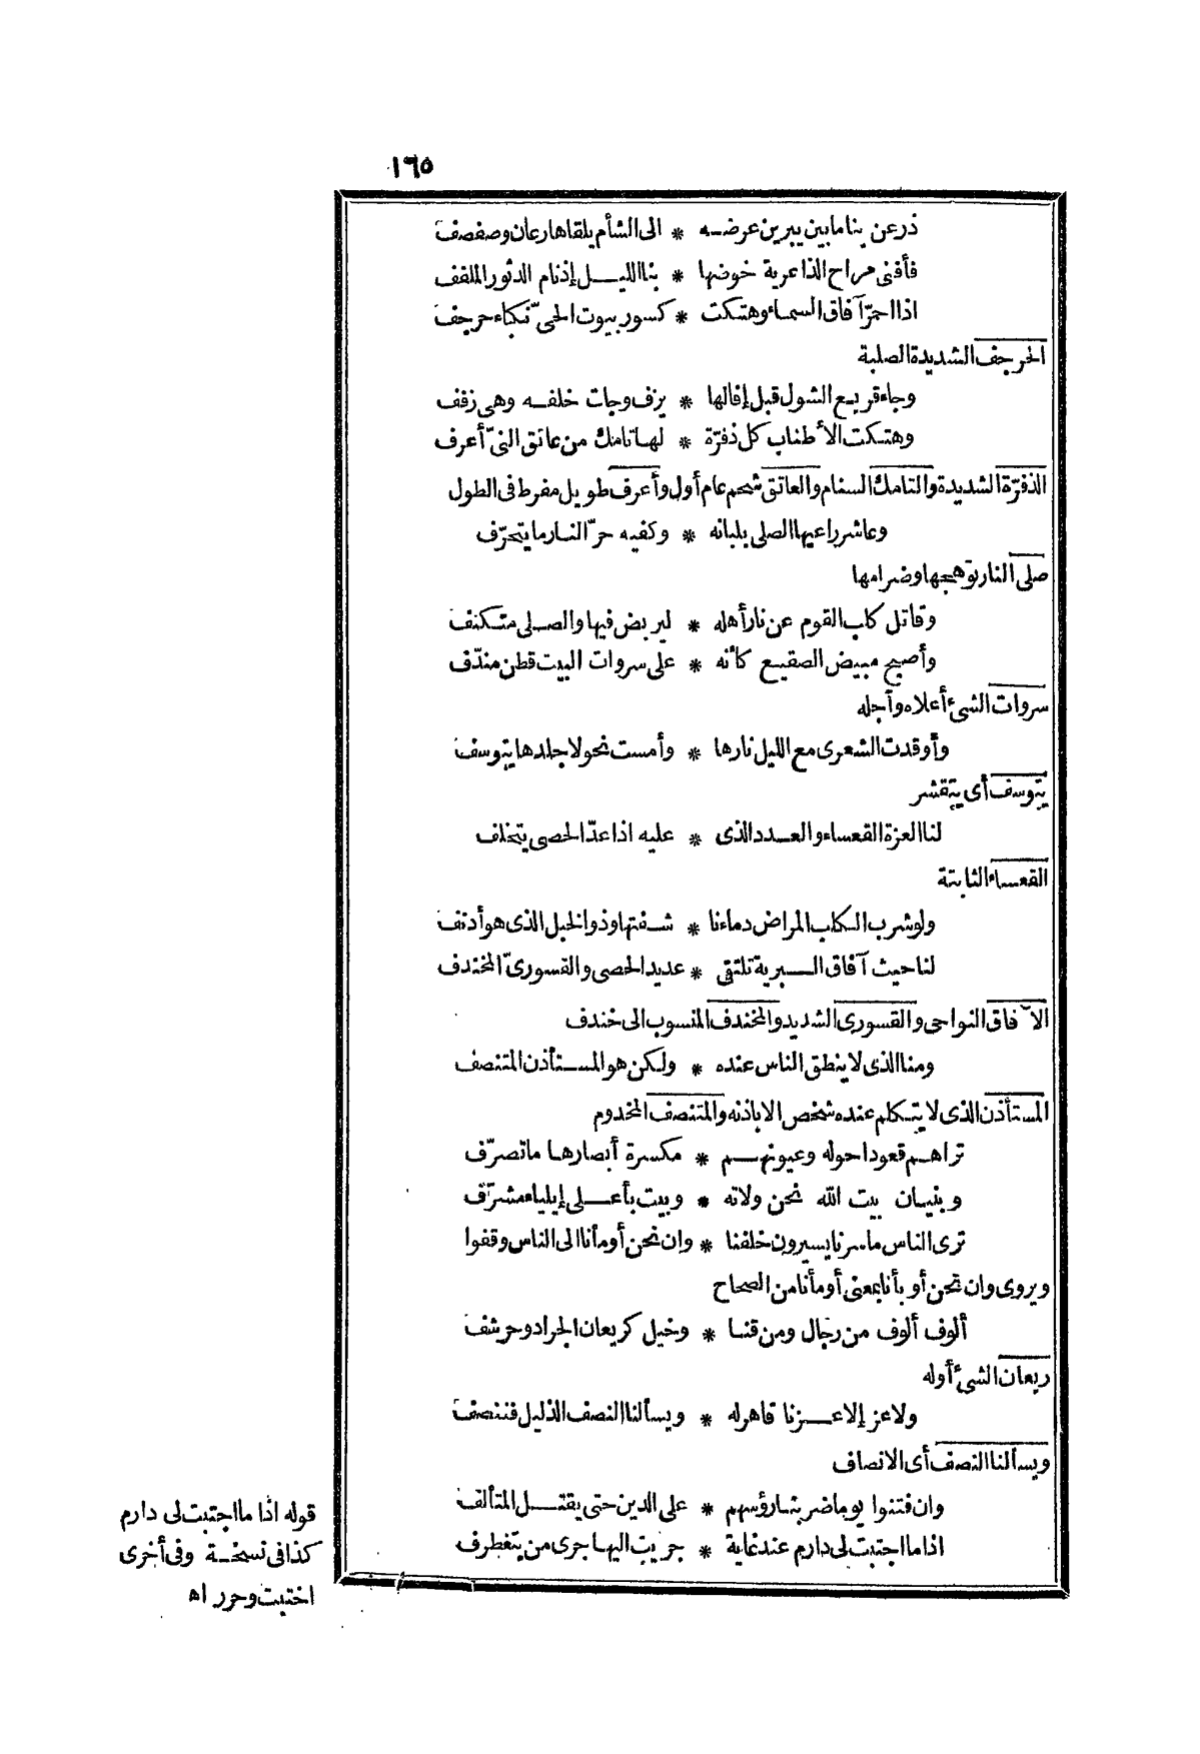 ١٦٥
ذرعن بنا ما بين يبرين عرضه * الى الشأم يلقاها رعان وصفصف
فأفنى مراح الذاعرية خوضها * بنا الليل إذ نام الدثور الملفف
اذا احمرّ آفاق السماء وهتكت * كسور بيوت الحيّ نكباء حرجف
الحرجف الشديدة الصلبة
وجاء قريع الشول قبل إفالها * يزف وجات خلفه وهى زفف
وهتكت الأطناب كل ذفرّة * لها تامك من عاتق النىّ أعرف
الذفرّة الشديدة والتامك السنام والعاتق شحم عام أول وأعرف طويل مفرط فى الطول
وعاشر راعيها الصلى بلبانه * وكفيه حرّ النار ما يتحرّف
صلى النار توهجها وضرامها
وقاتل كلب القوم عن نار أهله * ليربض فيها والصلى متكنف
وأصبح مبيض الصقيع كأنه * على سروات البيت قطن مندّف
سروات الشىء أعلاه وآجله
وأوقدت الشعرى مع الليل نارها * وأمست نحولا جلدها يتوسف
يتوسف أى يتقشر
لنا العزة القعساء والعدد الذى * عليه اذا عدّ الحصى يتخلف
القعساء الثابتة
ولو شرب الكلب المراض دماءنا * شفتها وذو الخبل الذى هو أدنف
لنا حيث آفاق البرية تلتقى * عديد الحصى والقسورىّ المخندف
الآفاق النواحى والقسورى الشديد والمخندف المنسوب الى خندف
ومنا الذى لا ينطق الناس عنده * ولكن هو المستأذن المتنصف
المستأذن الذى لا يتكلم عنده شخص الا باذنه والمتنصف المخدوم
تراهم قعودا حوله وعيونهم * مكسرة أبصارها ما تصرّف
وبنيان بيت الله نحن ولاته * وبيت بأعلى إيلياء مشرّف
ترى الناس ما سرنا يسيرون خلفنا * وان نحن أومأنا الى الناس وقفوا
ويروى وان نحن أوبأنا بمعنى أومأنا من الصحاح
ألوف ألوف من رجال ومن قنا * وخيل كريعان الجراد وحرشف
ريعان الشىء أوله
ولا عز إلا عزنا قاهر له * ويسألنا النصف الذليل فننصف
ويسألنا النصف أى الانصاف
وان فتنوا يوما ضربنا رؤسهم * على الدين حتى يقتل المتألف
اذا ما اجتبت لى دارم عند غاية * جريت اليها جرى من يتغطرف
قوله اذا ما اجتبت لى دارم
كذا فى نسخة وفى أخرى
اختبت وحرر اه